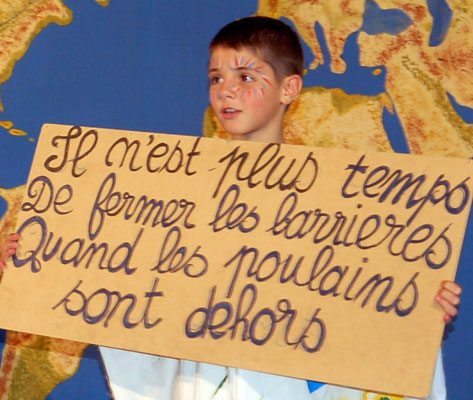 Il n'est plus temps
De fermer les barrieres
Quand les poulains
sont dehors